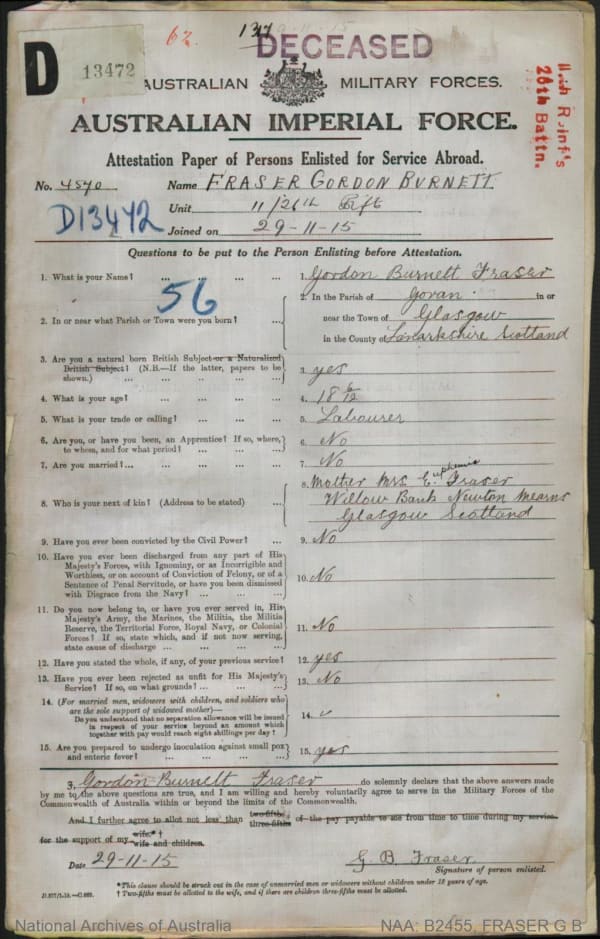 62.
1317
29-11-15
DECEASED
D
13472
AUSTRALIAN MILITARY FORCES.
11th Reinf's
26th Battn.
AUSTRALIAN IMPERIAL FORCE.
Attestation Paper of Persons Enlisted for Service Abroad.
No. 4570 Name FRASER GORDON BURNETT
D13472
Unit 11/26th Rft
Joined on 29-11-15
Questions to be put to the Person Enlisting before Attestation.
1. What is your Name? ... ... ... ... 1. Gordon Burnett Fraser
56
2. In or near what Parish or Town were you born? ... 2. In the Parish of Govan in or
near the Town of Glasgow
in the County of Lanarkshire Scotland
3. Are you a natural born British Subject or a Naturalized
British Subject? (N.B.—If the latter, papers to be
shown.) ... ... ... ... ... 3. yes
4. What is your age? ... ... ... ... 4. 18 6/12
5. What is your trade or calling? ... ... ... 5. Labourer
6. Are you, or have you been, an Apprentice? If so, where,
to whom, and for what period? ... ... ... 6. No
7. Are you married? ... ... ... ... ... 7. No
8. Who is your next of kin? (Address to be stated) ... 8. Mother Mrs Euphemia Fraser
Willow Bank Newton Mearns
Glasgow Scotland
9. Have you ever been convicted by the Civil Power? ... 9. No
10. Have you ever been discharged from any part of His
Majesty's Forces, with Ignominy, or as Incorrigible and
Worthless, or on account of Conviction of Felony, or of a
Sentence of Penal Servitude, or have you been dismissed
with Disgrace from the Navy? ... ... ... 10. No
11. Do you now belong to, or have you ever served in, His
Majesty's Army, the Marines, the Militia, the Militia
Reserve, the Territorial Force, Royal Navy, or Colonial
Forces? If so, state which, and if not now serving,
state cause of discharge ... ... ... ... 11. No
12. Have you stated the whole, if any, of your previous service? 12. yes
13. Have you ever been rejected as unfit for His Majesty's
Service? If so, on what grounds? ... ... ... 13. No
14. (For married men, widowers with children, and soldiers who
are the sole support of widowed mother)—
Do you understand that no separation allowance will be issued
in respect of your service beyond an amount which
together with pay would reach eight shillings per day? 14.
15. Are you prepared to undergo inoculation against small pox
and enteric fever? ... ... ... ... 15. yes
I, Gordon Burnett Fraser do solemnly declare that the above answers made
by me to the above questions are true, and I am willing and hereby voluntarily agree to serve in the Military Forces of the
Commonwealth of Australia within or beyond the limits of the Commonwealth.
And I further agree to allot not less than two-fifths three-fifths of the pay payable to me from time to time during my service
for the support of my wife* † wife and children.
Date 29-11-15 G. B. Fraser
Signature of person enlisted.
*This clause should be struck out in the case of unmarried men or widowers without children under 18 years of age.
† Two-fifths must be allotted to the wife, and if there are children three-fifths must be allotted.
National Archives of Australia NAA: B2455, FRASER G B